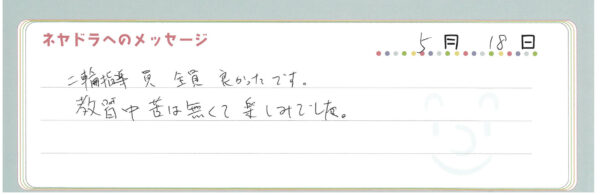 ネヤドラへのメッセージ
5月 18日
二輪指導員 全員 良かったです。
教習中 苦は無くて 楽しみでした。